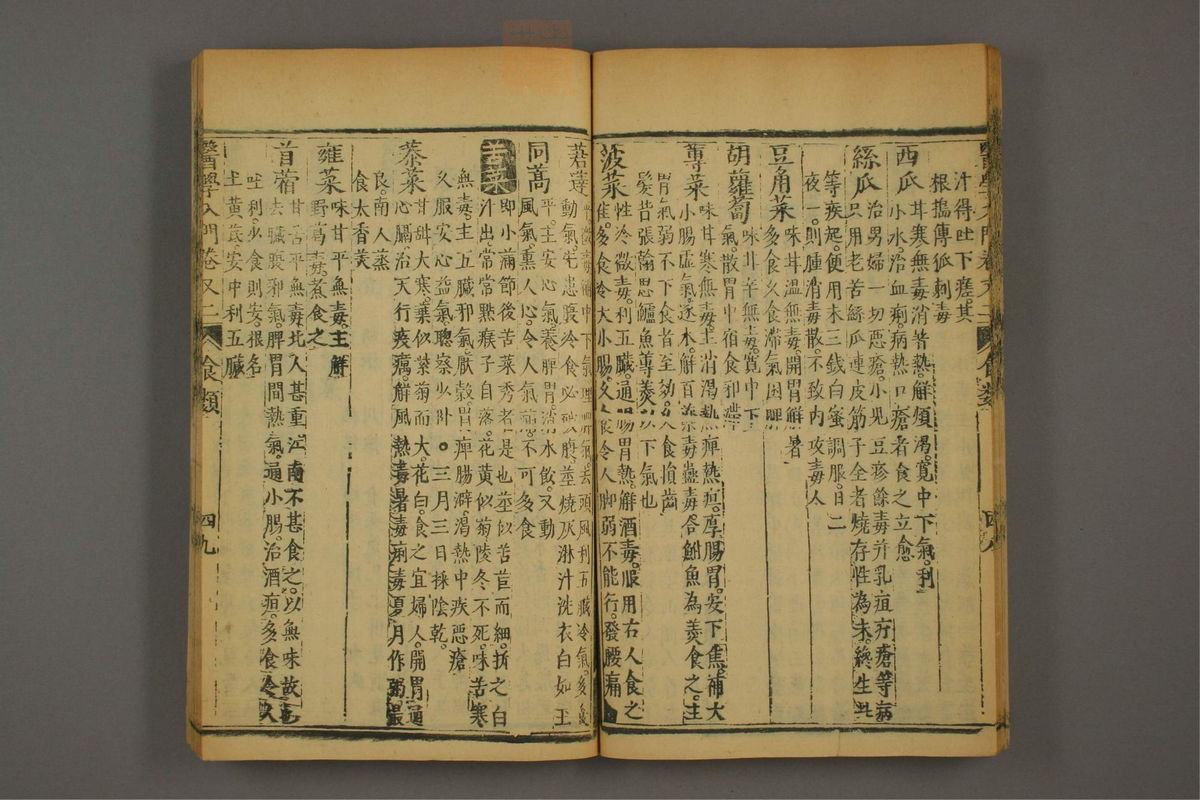 汁得吐下瘥其
根搗傅狐刺毒
西瓜 味甘寒無毒消暑熱解煩渴寬中下氣利
小水治血痢病熱口瘡者食之立愈
絲瓜 治男婦一切惡瘡小兒豆疹餘毒并乳疽疔瘡等病
只用老苦絲瓜連皮筋子全者燒存性為末
等疾起便用末三錢白蜜調服日二
夜一則腫消毒散不致內攻毒人
豆角菜 味甘溫無毒開胃解暑
多食久食滯氣困脾
胡蘿蔔 味甘辛無毒寬中下
氣散胃中宿食邪滯
蓴菜 味甘寒無毒主消渴熱痺熱疸厚腸胃安下焦補大
小腸虛氣逐水解百藥毒蠱毒合鯽魚為羹食之主
胃氣弱不下食者至効久食損齒
髮昔張翰思鱸魚蓴羹以下氣也
菠菜 性冷微毒利五臟通腸胃熱解酒毒服用石人食之
佳多食冷大小腸久食令人脚弱不能行發腰痛
莙薘 平微毒補中下氣理脾氣去頭風利五臟冷氣多食
動氣先患腹冷食必破腹莖燒灰淋汁洗衣白如玉
同蒿 平主安心氣養脾胃消水飲又動
風氣熏人心令人氣滿不可多食
苦菜 即小滿節後苦菜秀者是也莖似苦苣而細折之白
汁出常常點瘊子自落花黃似菊陵冬不死味苦寒
無毒主五臟邪氣厭穀胃痺腸澼渴熱中疾惡瘡
久服安心益氣聰察少卧○三月三日採陰乾
菾菜 甘甜大寒葉似紫菊而大花白食之宜婦人開胃通
心膈治天行疫癘解風熱毒暑毒痢毒夏月作粥最
良南人蒸
食太香美
雍菜 味甘平無毒主解
野葛毒煮食之
苜蓿 甘苦平無毒北人甚重江南不甚食之以無味故也
去臟腹邪氣脾胃間熱氣通小腸治酒疸多食令人
吐利少食則安根名
土黃芪安中利五臟
醫學入門卷又二 食類 四九